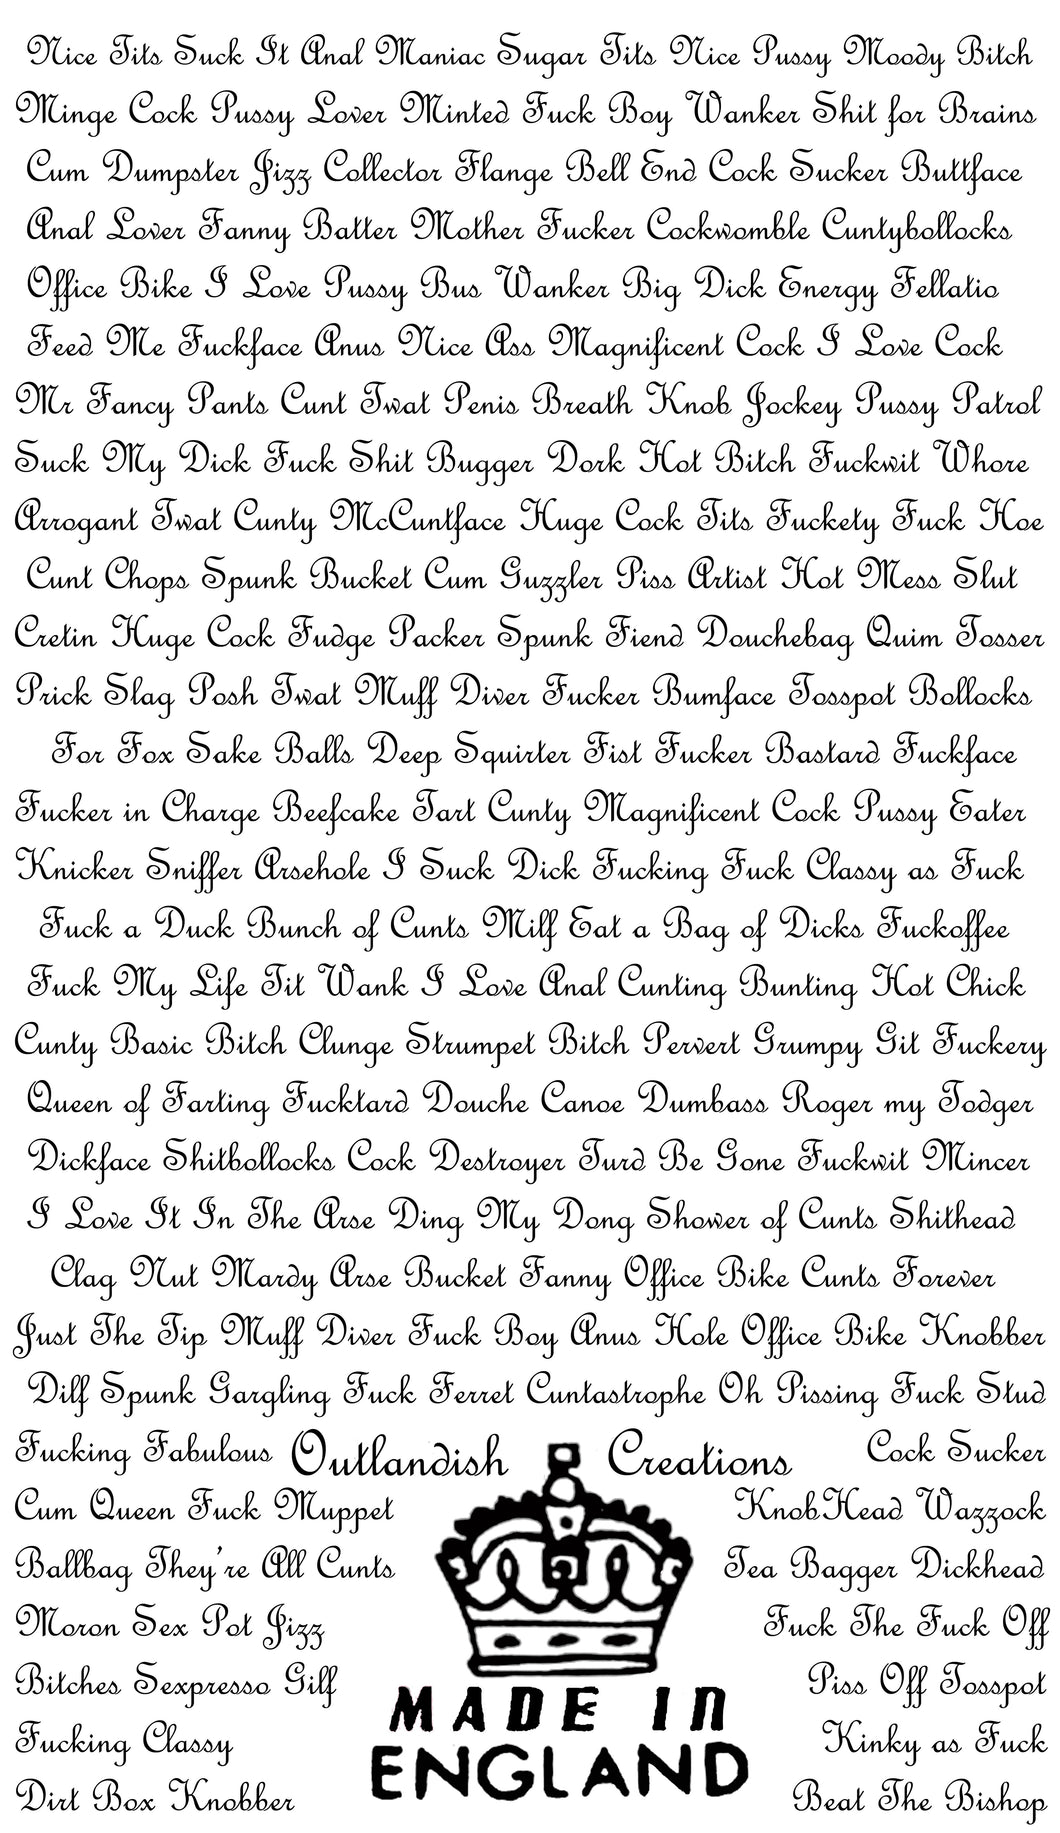 Nice Tits Suck It Anal Maniac Sugar Tits Nice Pussy Moody Bitch
Minge Cock Pussy Lover Minted Fuck Boy Wanker Shit for Brains
Cum Dumpster Jizz Collector Flange Bell End Cock Sucker Buttface
Anal Lover Fanny Batter Mother Fucker Cockwomble Cuntybollocks
Office Bike I Love Pussy Bus Wanker Big Dick Energy Fellatio
Feed Me Fuckface Anus Nice Ass Magnificent Cock I Love Cock
Mr Fancy Pants Cunt Twat Penis Breath Knob Jockey Pussy Patrol
Suck My Dick Fuck Shit Bugger Dork Hot Bitch Fuckwit Whore
Arrogant Twat Cunty McCuntface Huge Cock Tits Fuckety Fuck Hoe
Cunt Chops Spunk Bucket Cum Guzzler Piss Artist Hot Mess Slut
Cretin Huge Cock Fudge Packer Spunk Fiend Douchebag Quim Tosser
Prick Slag Posh Twat Muff Diver Fucker Bumface Tosspot Bollocks
For Fox Sake Balls Deep Squirter Fist Fucker Bastard Fuckface
Fucker in Charge Beefcake Tart Cunty Magnificent Cock Pussy Eater
Knicker Sniffer Arsehole I Suck Dick Fucking Fuck Classy as Fuck
Fuck a Duck Bunch of Cunts Milf Eat a Bag of Dicks Fuckoffee
Fuck My Life Tit Wank I Love Anal Cunting Bunting Hot Chick
Cunty Basic Bitch Clunge Strumpet Bitch Pervert Grumpy Git Fuckery
Queen of Farting Fucktard Douche Canoe Dumbass Roger my Todger
Dickface Shitbollocks Cock Destroyer Turd Be Gone Fuckwit Mincer
I Love It In The Arse Ding My Dong Shower of Cunts Shithead
Clag Nut Mardy Arse Bucket Fanny Office Bike Cunts Forever
Just The Tip Muff Diver Fuck Boy Anus Hole Office Bike Knobber
Dilf Spunk Gargling Fuck Ferret Cuntastrophe Oh Pissing Fuck Stud
Fucking Fabulous Outlandish Creations Cock Sucker
Cum Queen Fuck Muppet KnobHead Wazzock
Ballbag They're All Cunts Tea Bagger Dickhead
Moron Sex Pot Jizz Fuck The Fuck Off
Bitches Sexpresso Gilf Piss Off Tosspot
MADE IN
Fucking Classy Kinky as Fuck
ENGLAND
Dirt Box Knobber Beat The Bishop